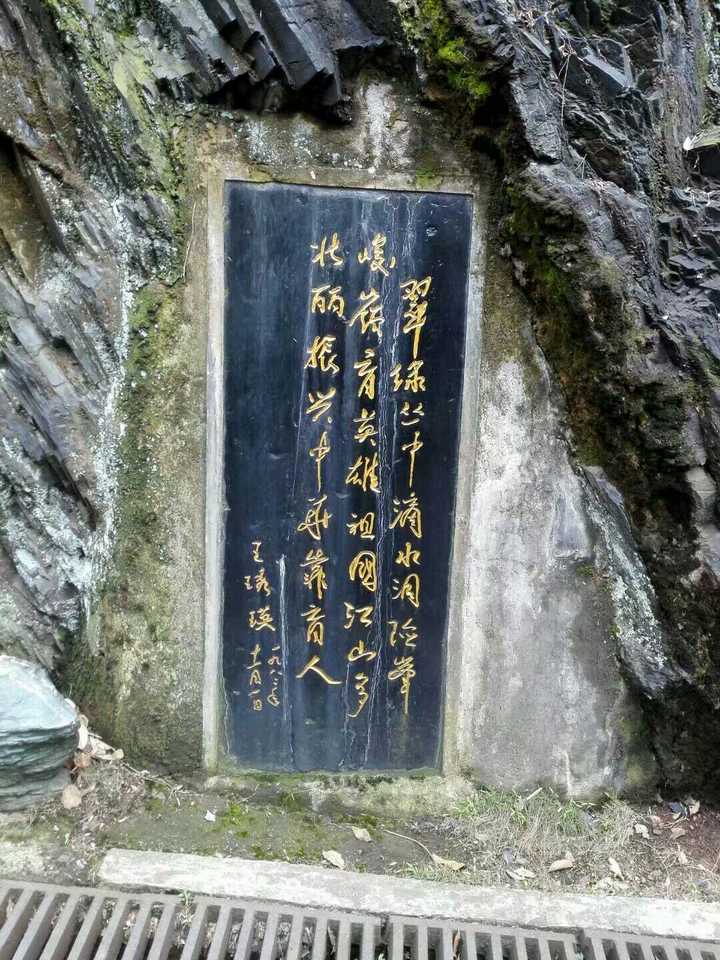 翠绿丛中滴水洞险峰
峻岭育英雄祖國江山多
壮丽振兴中华靠育人
王琇瑛
一九八三年
十一月一日